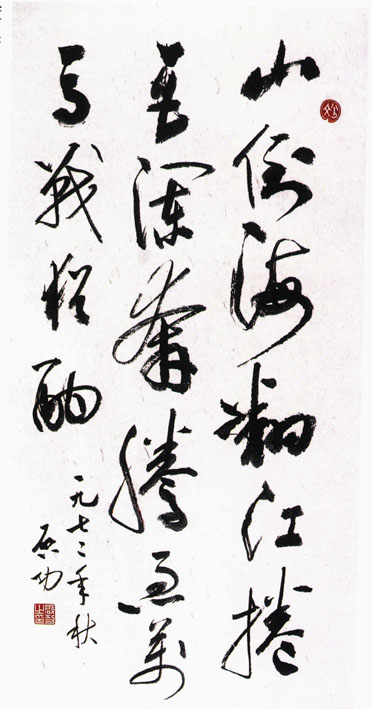 山倒海翻江捲
巨瀾奔騰急萬
馬戰猶酣
一九七二年秋
启功